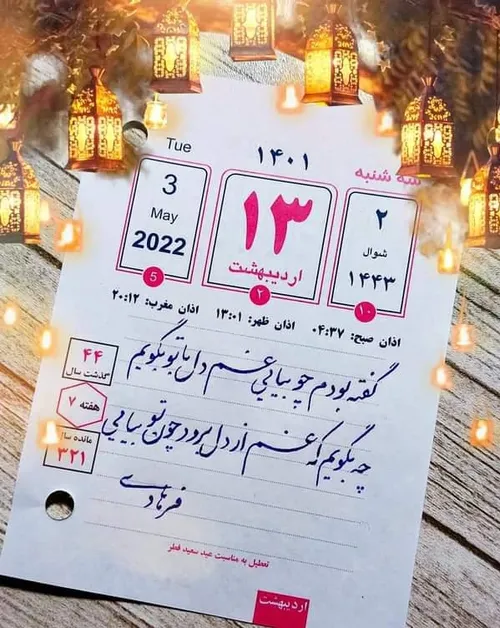 Tue
۱۴۰۱
سه شنبه
3
May
2022
5
۱۳
اردیبهشت
۲
۲
شوال
۱۴۴۳
۱۰
اذان صبح: ۰۴:۳۷ اذان ظهر: ۱۳:۰۱ اذان مغرب: ۲۰:۱۲
۴۴
گذشت سال
هفته ۷
مانده سال
۳۲۱
گفته بودم چو بیایی غم دل با تو بگویم
چه بگویم که غم از دل برود چون تو بیایی
فرهادی
تعطیل به مناسبت عید سعید فطر
اردیبهشت